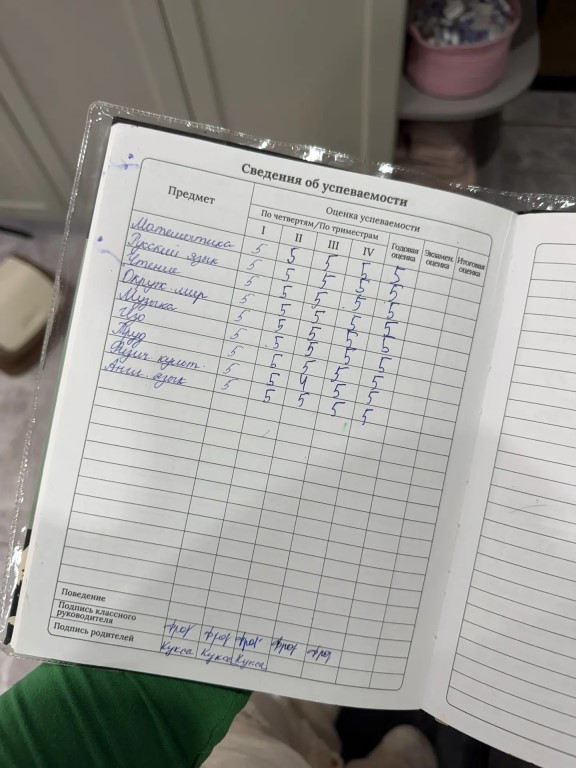 Сведения об успеваемости
Предмет
Оценка успеваемости
По четвертям/По триместрам
I II III IV Годовая оценка Экзамен. оценка Итоговая оценка
Математика 5 5 5 5 5
Русский язык 5 5 5 5 5
Чтение 5 5 5 5 5
Окруж. мир 5 5 5 5 5
Музыка 5 5 5 5 5
Изо 5 5 5 5 5
Труд 5 5 5 5 5
Физич. культ. 5 5 4 5 5
Англ. язык 5 5 5 5 5
Поведение
Подпись классного
руководителя
Подпись родителей Кукса Кукса Кукса